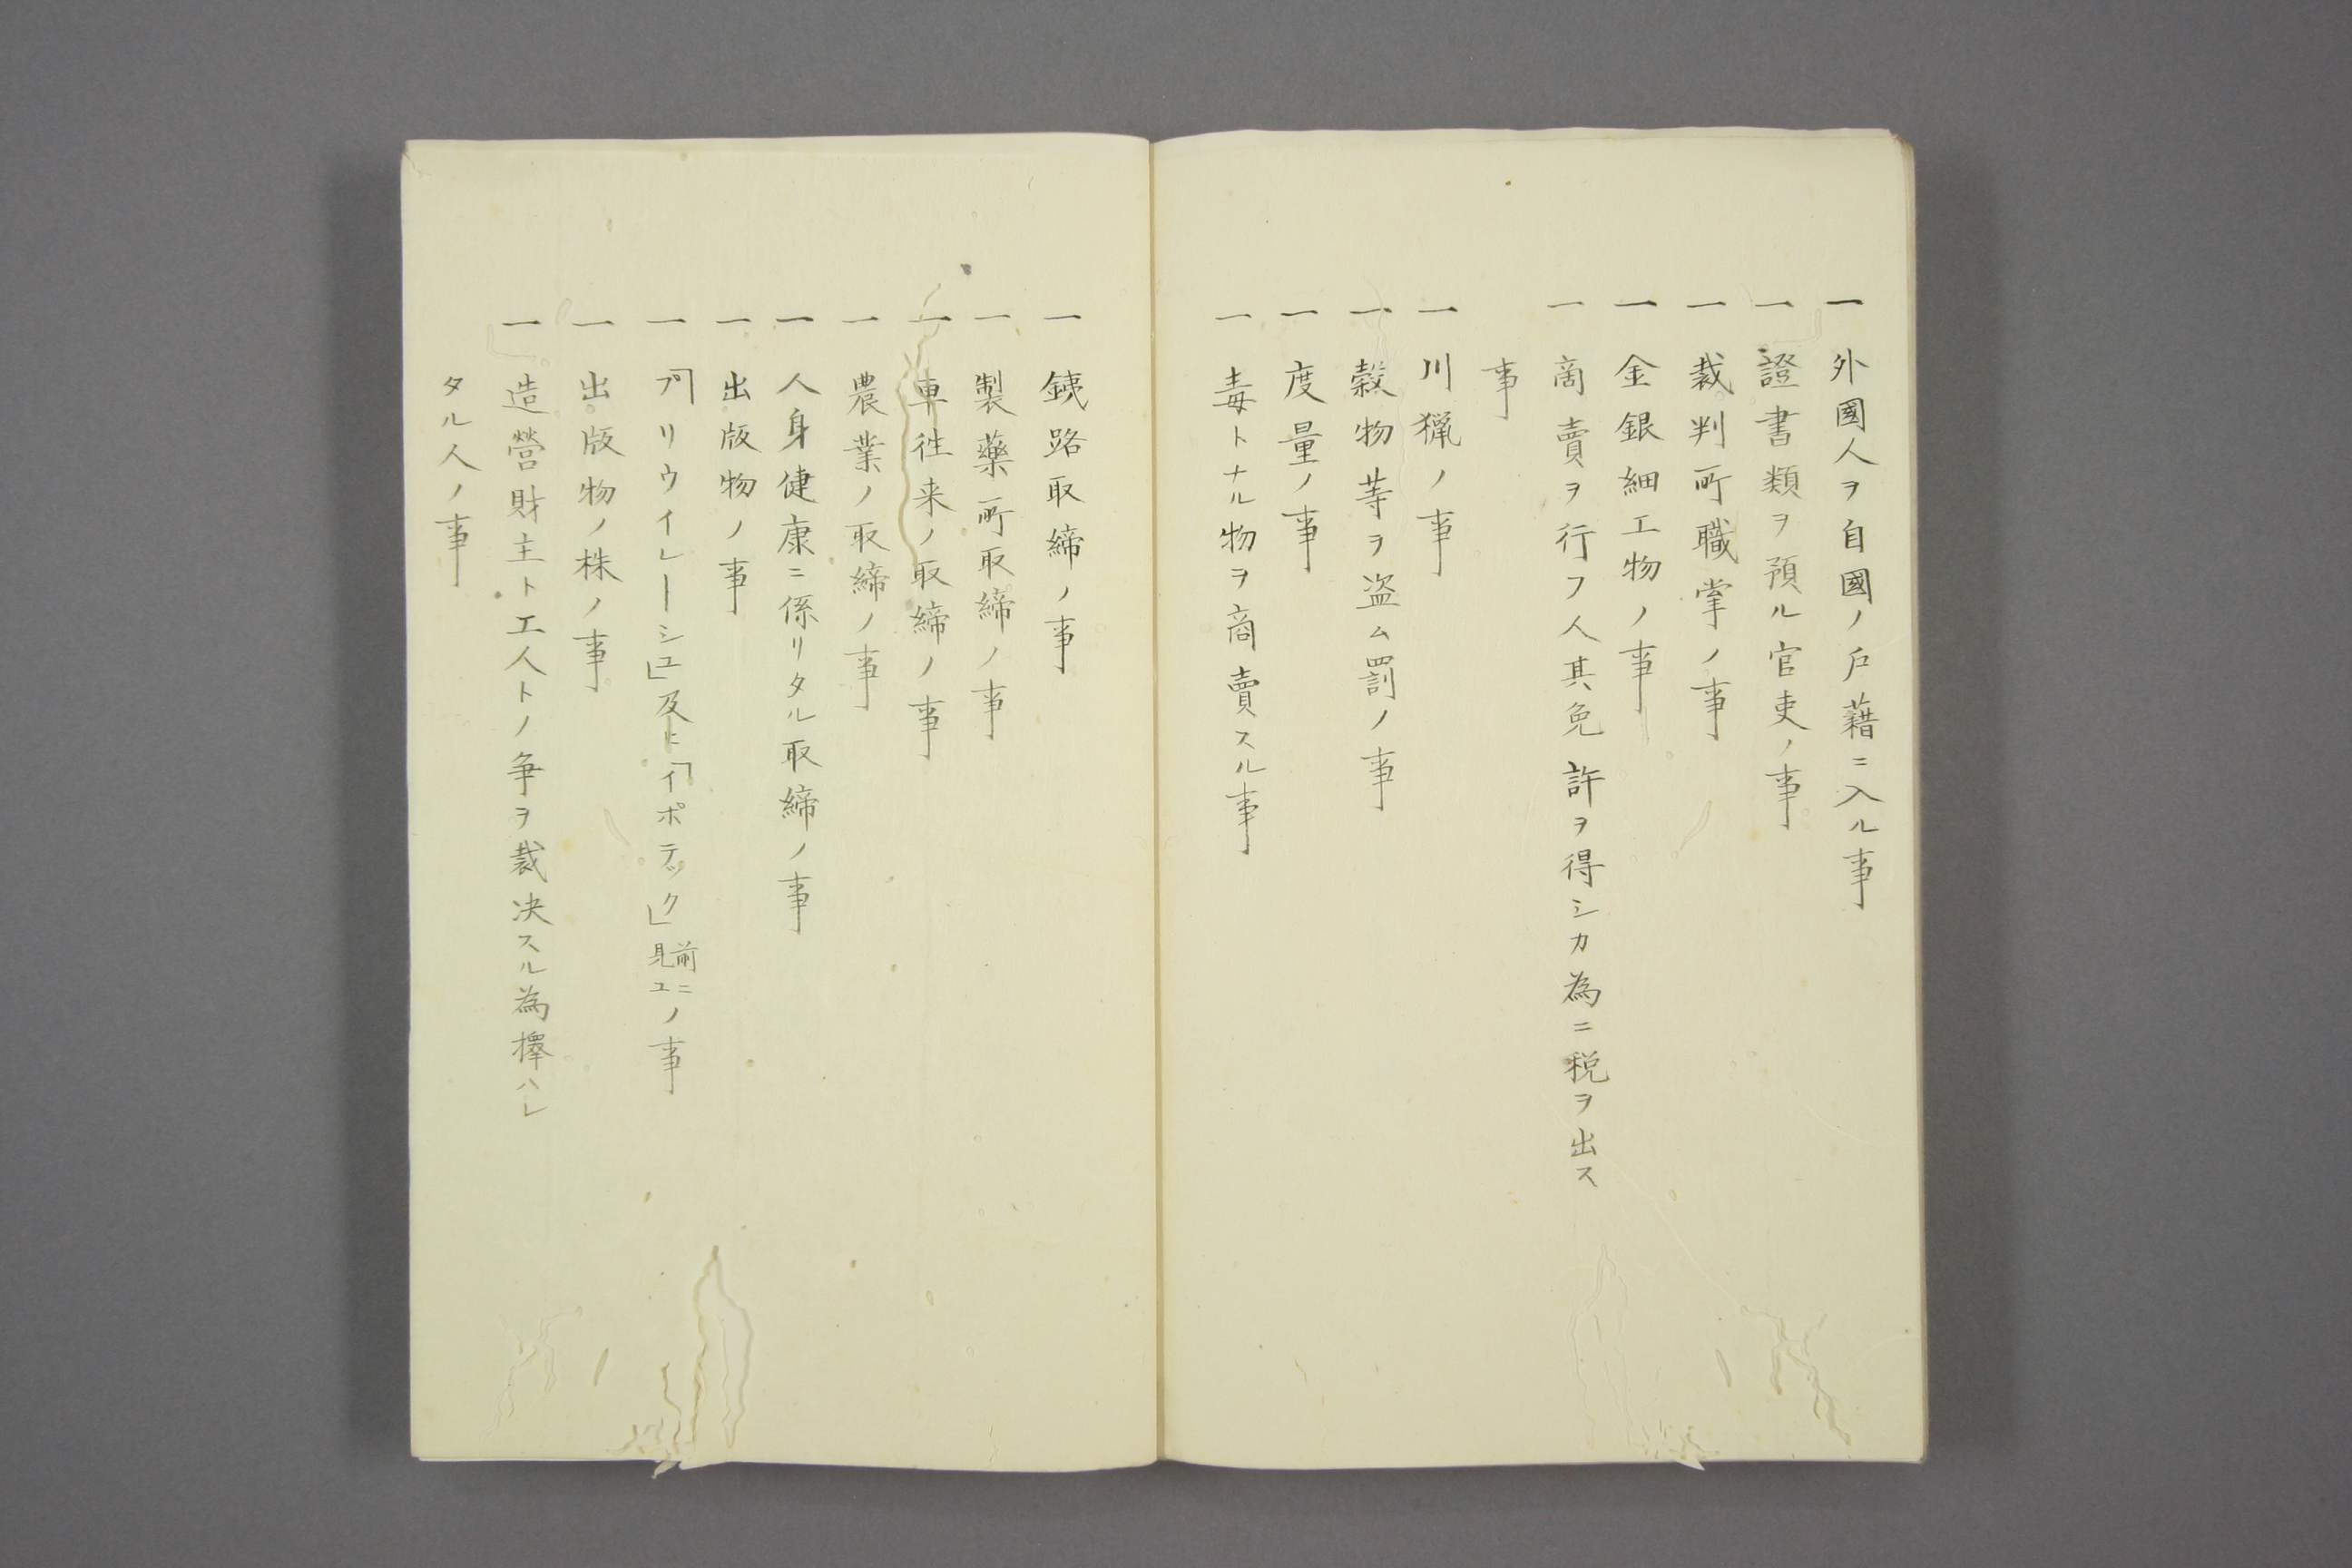 一 外國人ヲ自國ノ戸藉ニ入ル事
一 證書類ヲ預ル官吏ノ事
一 裁判所職掌ノ事
一 金銀細工物ノ事
一 商賣ヲ行フ人其免許ヲ得シカ為ニ税ヲ出ス
事
一 川猟ノ事
一 穀物等ヲ盗ム罰ノ事
一 度量ノ事
一 毒トナル物ヲ商賣スル事
一 銕路取締ノ事
一 製藥所取締ノ事
一 車徃来ノ取締ノ事
一 農業ノ取締ノ事
一 人身健康ニ係リタル取締ノ事
一 出版物ノ事
一 「プリウイレーシユ」及ヒ「イポテック」前ニ見ユノ事
一 出版物ノ株ノ事
一 造營財主ト工人トノ争ヲ裁决スル為擇ハレ
タル人ノ事